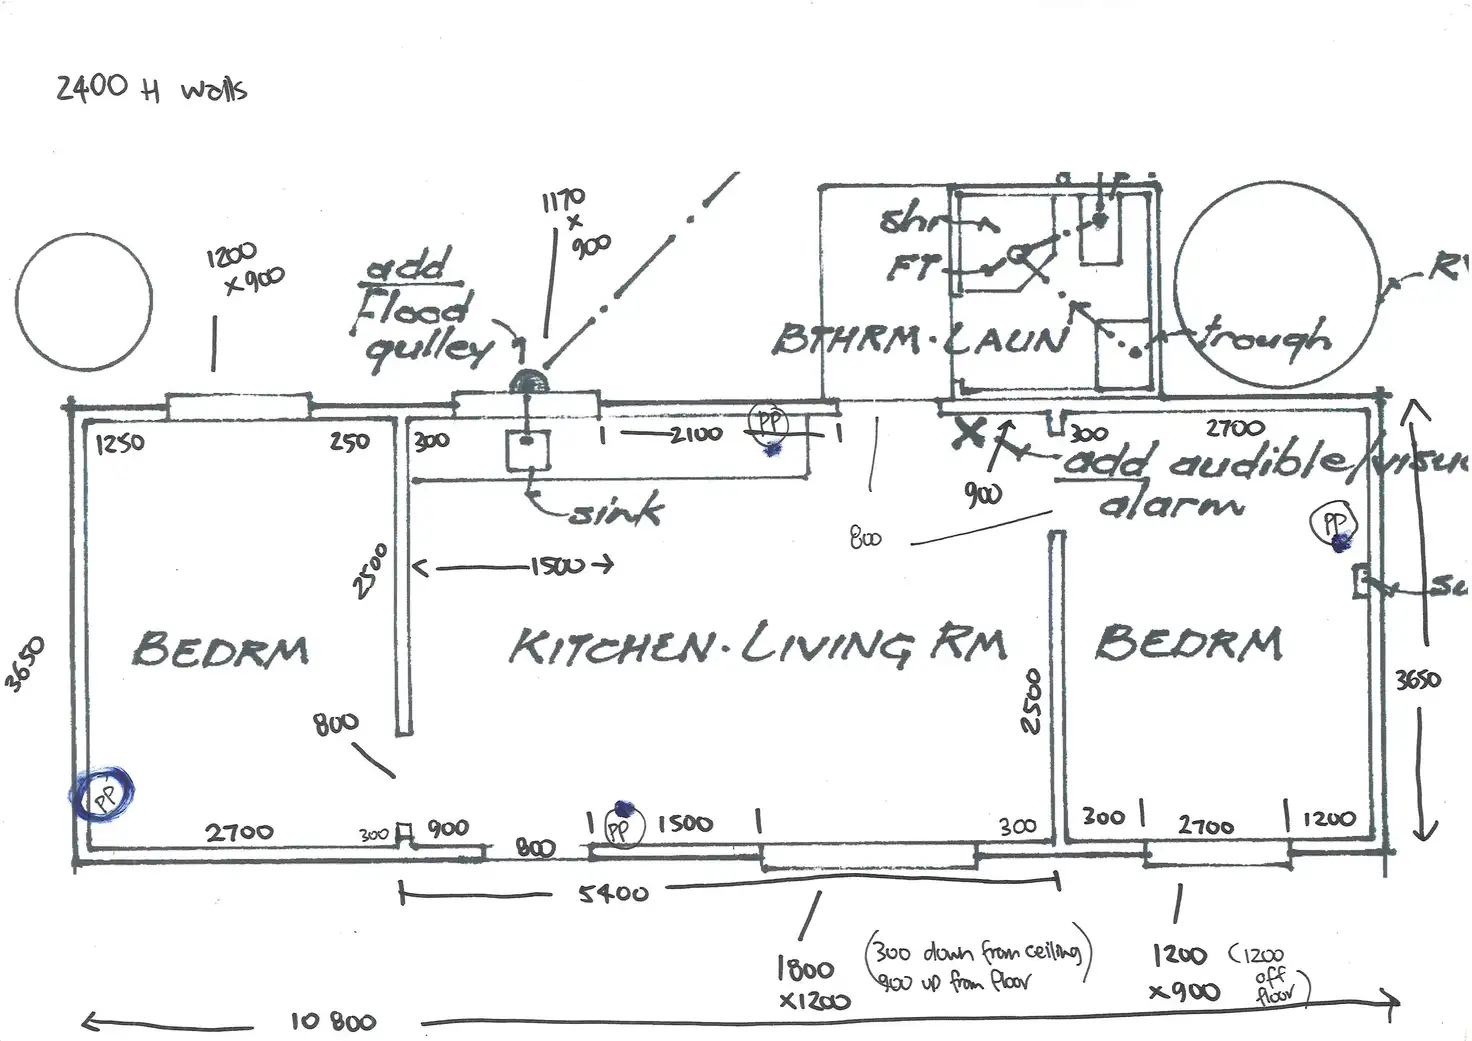 2400 H walls
1170
x
900
1200
x900
add
flood
gulley
shr
FT
BTHRM·LAUN
trough
1250
250
300
2100
PP
300
2700
add audible/visu
alarm
900
sink
800
PP
2500
1500
3650
BEDRM
KITCHEN·LIVING RM
BEDRM
2500
3650
800
PP
2700
300
900
800
PP
1500
300
300
2700
1200
5400
1800
x1200
(300 down from ceiling)
900 up from floor
1200
x900
(1200
off
floor)
10 800